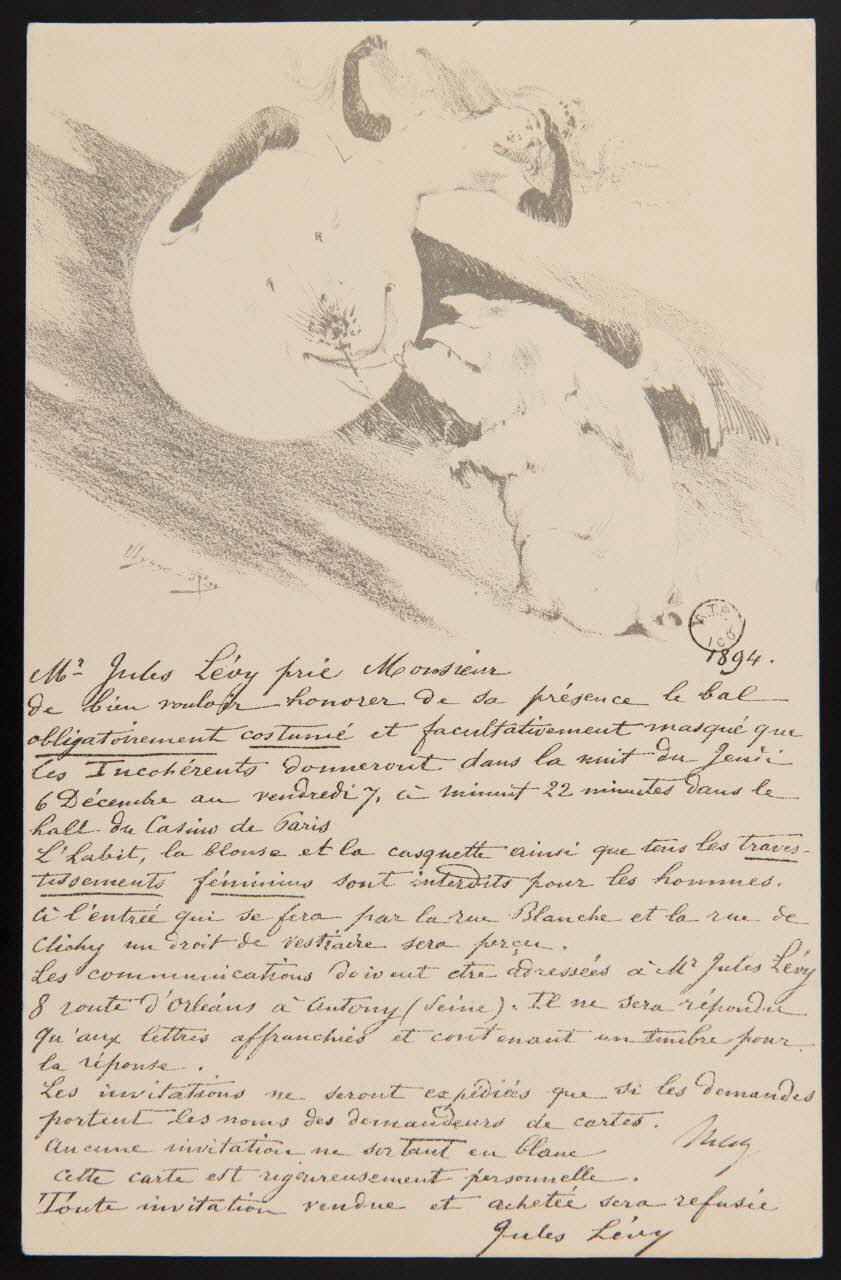 1894.
Mr Jules Lévy prie Monsieur
de bien vouloir honorer de sa présence le bal
obligatoirement costumé et facultativement masqué que
les Incohérents donneront dans la nuit du Jeudi
6 Décembre au vendredi 7, à minuit 22 minutes dans le
hall du Casino de Paris
L'habit, la blouse et la casquette ainsi que tous les traves-
tissements féminins sont interdits pour les hommes.
à l'entrée qui se fera par la rue Blanche et la rue de
Clichy un droit de vestiaire sera perçu.
Les communications doivent être adressées à Mr Jules Lévy
8 route d'Orléans à Antony (Seine). Il ne sera répondu
qu'aux lettres affranchies et contenant un timbre pour
la réponse.
Les invitations ne seront expédiées que si les demandes
portent les noms des demandeurs de cartes.
Aucune invitation ne sortant en blanc
Cette carte est rigoureusement personnelle.
Toute invitation vendue et achetée sera refusée
Jules Lévy